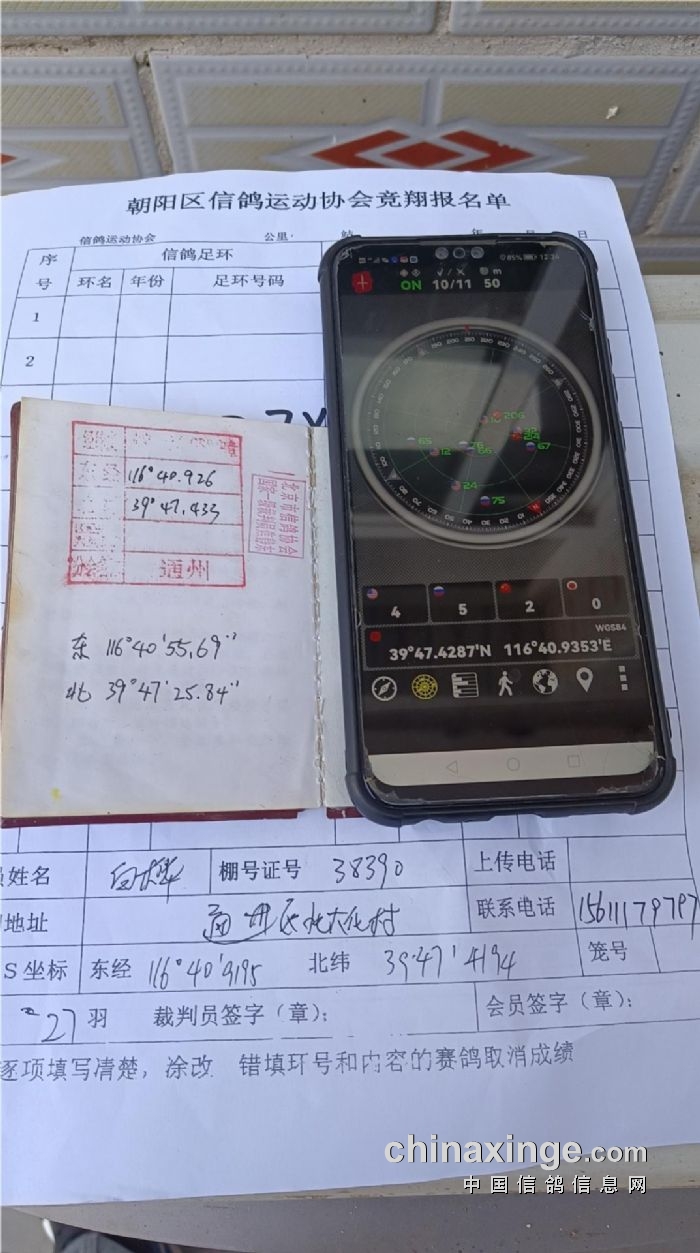 朝阳区信鸽运动协会竞翔报名单
信鸽运动协会 公里 站 年 月 日
序号 信鸽足环
环名 年份 足环号码
1
2
85% 12:34
ON 10/11 50 m
东经 116°40.926
39°47.433
通州
北京市信鸽协会
东 116°40'55.69"
北 39°47'25.84"
4 5 2 0
WGS84
39°47.4287'N 116°40.9353'E
员姓名 棚号证号 38390 上传电话
地址 联系电话 15611179797
S坐标 东经 116°40'9195 北纬 39°47'4194 笼号
27羽 裁判员签字（章）： 会员签字（章）：
逐项填写清楚，涂改 错填环号和内容的赛鸽取消成绩
chinaxinge.com
中国信鸽信息网